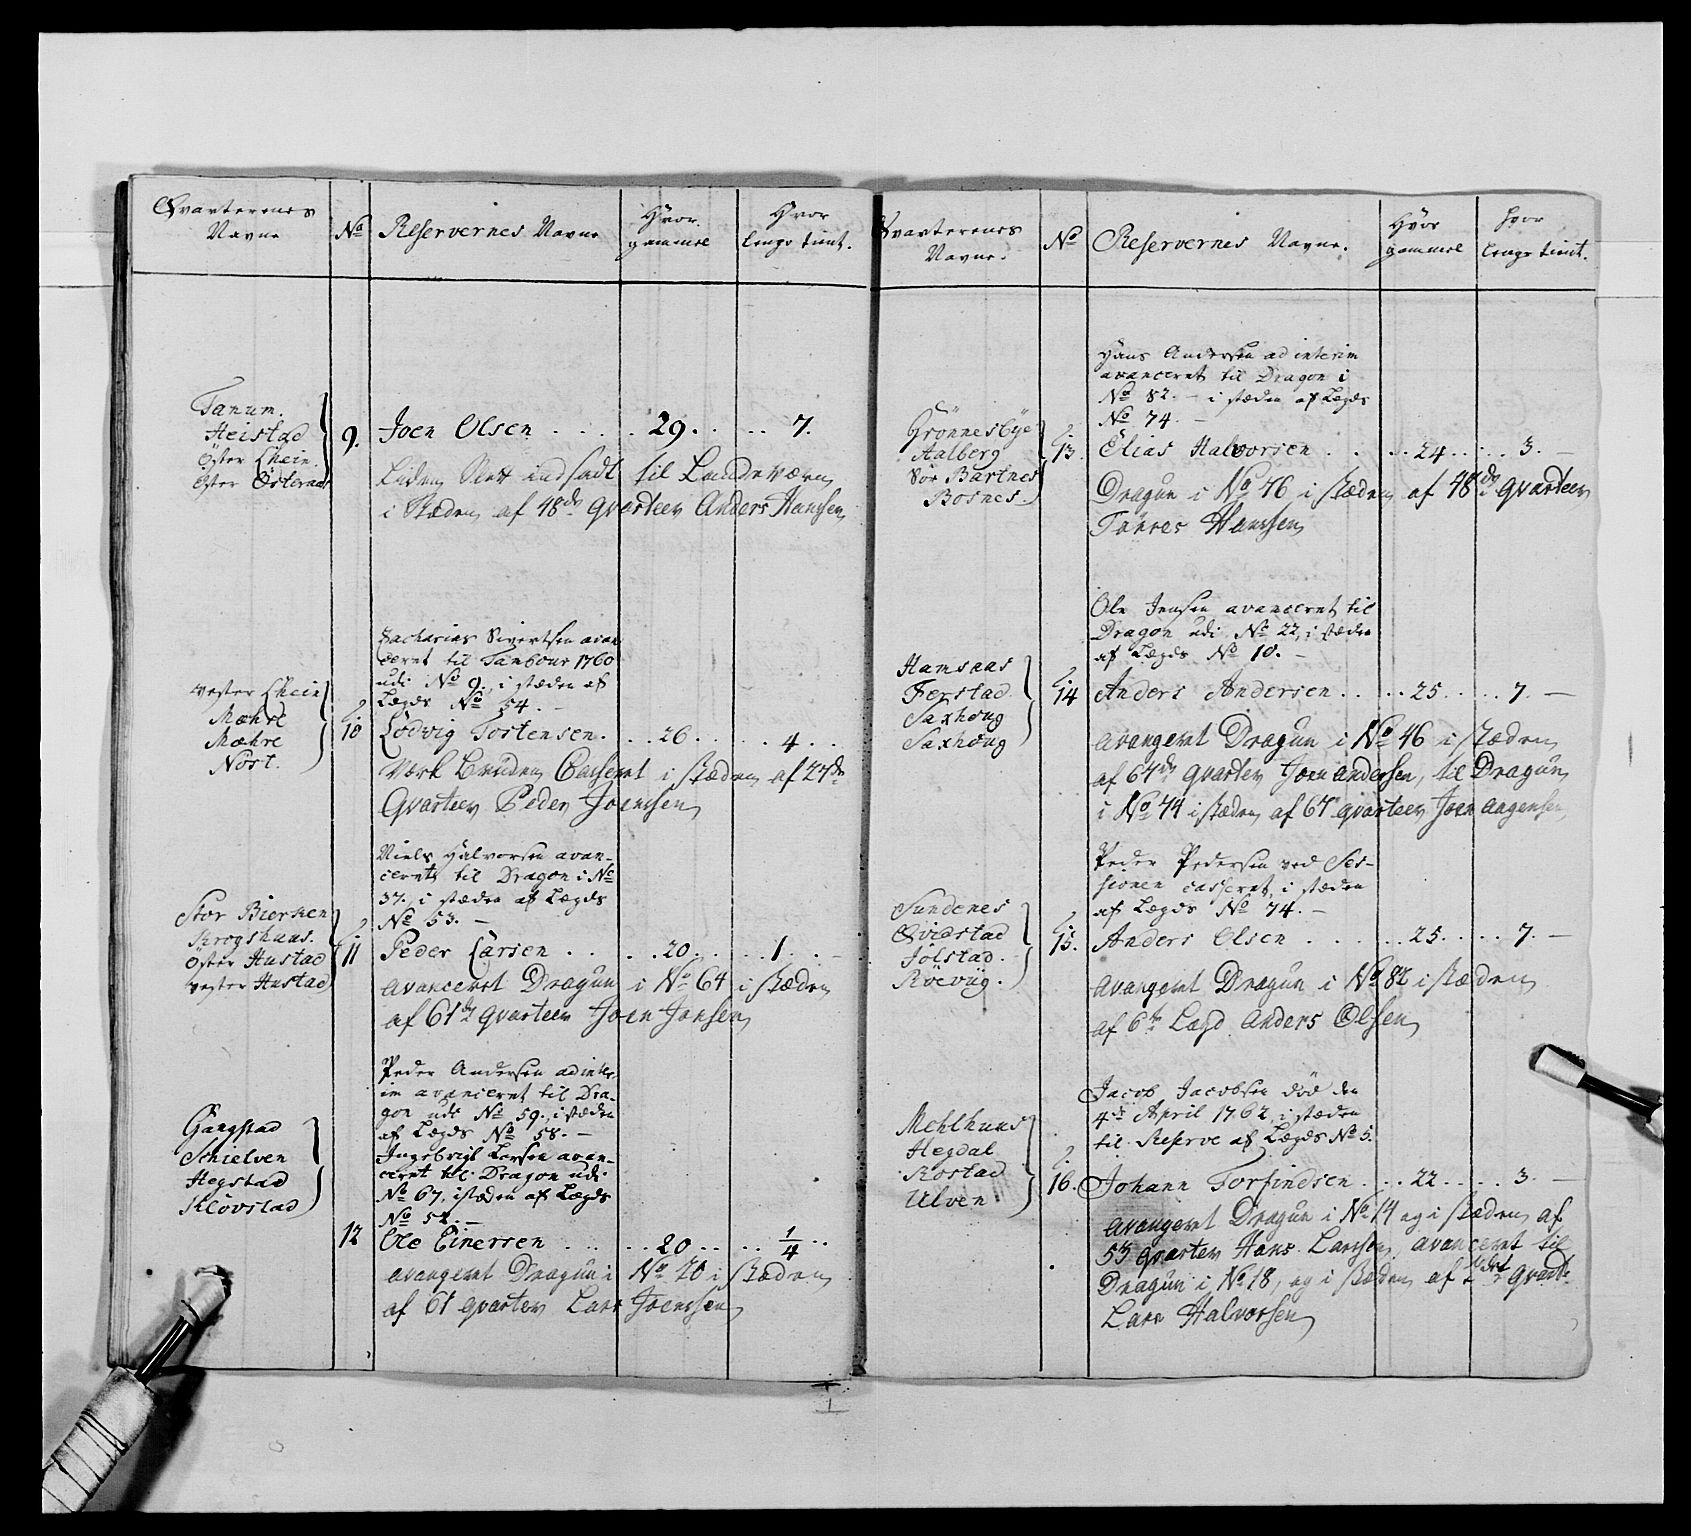 Qvarterenes Navne
No
Reservernes Navne
Hvor gammel
Hvor lenge tient.
Tanum.
Heistad
Öster Lhein.
Öster Österaas
9. Joen Olsen . . . . 29. . . . 7.
i Stæden af 48de Qvarteer Anders Hanssen
Zacharias Sivertsen avan-
ceret til Tambour 1760
udi No 9, i stæden af
Lægds No 54. -
Vester Lhein
Mæhre
Mæhre
Nört.
10 Lodvig Tostensen. . . 26. . . . 4. .
Casseret i Stæden af 27de
Qvarteer Peder Joenssen
Niels Halvorsen avan-
ceret til Dragon i No
37. i stæden af Lægds
No 53. -
Stor Bierken
Krogshuus.
Öster Hustad
Vester Hustad
11 Peder Larsen . . . . 20. . . . 1. . -
avanceret Dragun i No 64 i Stæden
af 61de Qvarteer Joen Jonsen
Peder Andersen ad inter-
im avanceret til Dra-
gon udi No 59., i stæden
af Lægds No 58. -
Ingebrigt Larsen avan-
ceret til Dragon udi
No 67, i stæden af Lægds
No 52. -
Gangstad
Schielven
Hegstad
Klövstad
12 Ole Einersen . . . . 20 . . . . 1/4 . .
avangeret Dragun i No 20 i Stæden
af 61 qvarteer Lars Joenssen
Qvarterenes Navne.
No
Reservernes Navne.
Hvor gammel
Hvor lenge tient.
Hans Andersen ad interim
avanceret til Dragon i
No 82. - i stæden af Lægds
No 74. -
Grönnesbye
Aalberg
Sör Bartnes
Bosnes.
13. Elias Halvorsen . . . . 24 . . . . 3. -
Dragun i No 46 i Stæden af 48de Qvarteer
Törres Hanssen
Ole Jensen avanceret til
Dragon udi No 22, i stæden
af Lægds No 10. -
Hamsaas
Ferstad.
Saxhoug
Saxhoug
14 Anders Andersen . . . . 25 . . . . 7. -
avangeret Dragun i No 46 i Stæden
af 64de qvarteer Joen Andersen, til Dragun
i No 44 i Stæden af 67 qvarteer Joen Aagensen
Peder Pedersen ved Ses-
sionen casseret, i stæden
af Lægds No 74. -
Sundenes
Qvidstad
Jölstad.
Röeviig.
15. Anders Olsen . . . . 25. . . . 7. -
avangeret Dragun i No 82 i Stæden
af 6te Lægd Anders Olsen
Jacob Jacobsen död den
4de April 1762, i stæden
til Reserve af Lægds No 5.
Mehlhuus
Hegdal
Rostad
Ulven
16. Johann Torfindsen . . . 22. . . . 3. -
avangeret Dragun i No 14 og i Stæden af
53 qvarteer Hans Larssen, avanceret til
Dragun i No 18, og i Stæden af
Lars Halvorsen